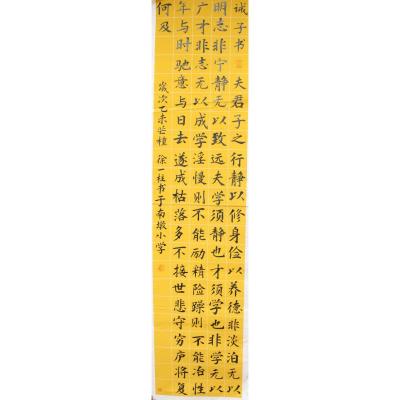 诫子书 夫君子之行静以修身俭以养德非淡泊无以
明志非宁静无以致远夫学须静也才须学也非学无以
广才非志无以成学淫慢则不能励精险躁则不能治性
年与时驰意与日去遂成枯落多不接世悲守穷庐将复
何及
歲次乙未芒種 徐一柱书于南墩小学